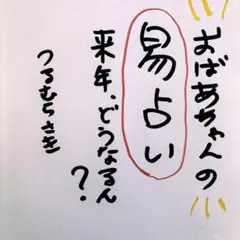 おばあちゃんの
易占い
来年、どうなるん?
つるむらさき